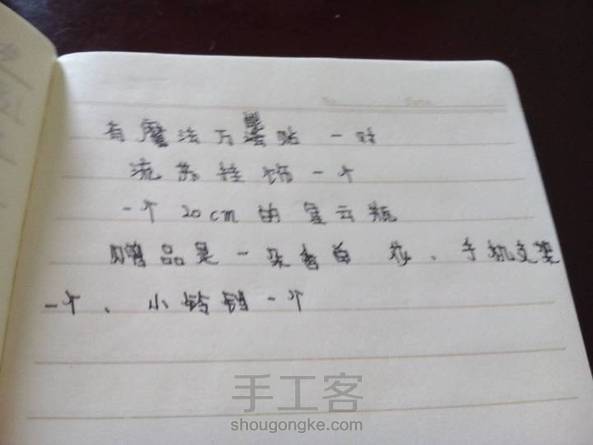 有魔法万圣贴一对
流苏挂饰一个
一个20cm的星云瓶
赠品是一朵香皂花、手机支架
一个、小铃铛一个
手工客
shougongke.com